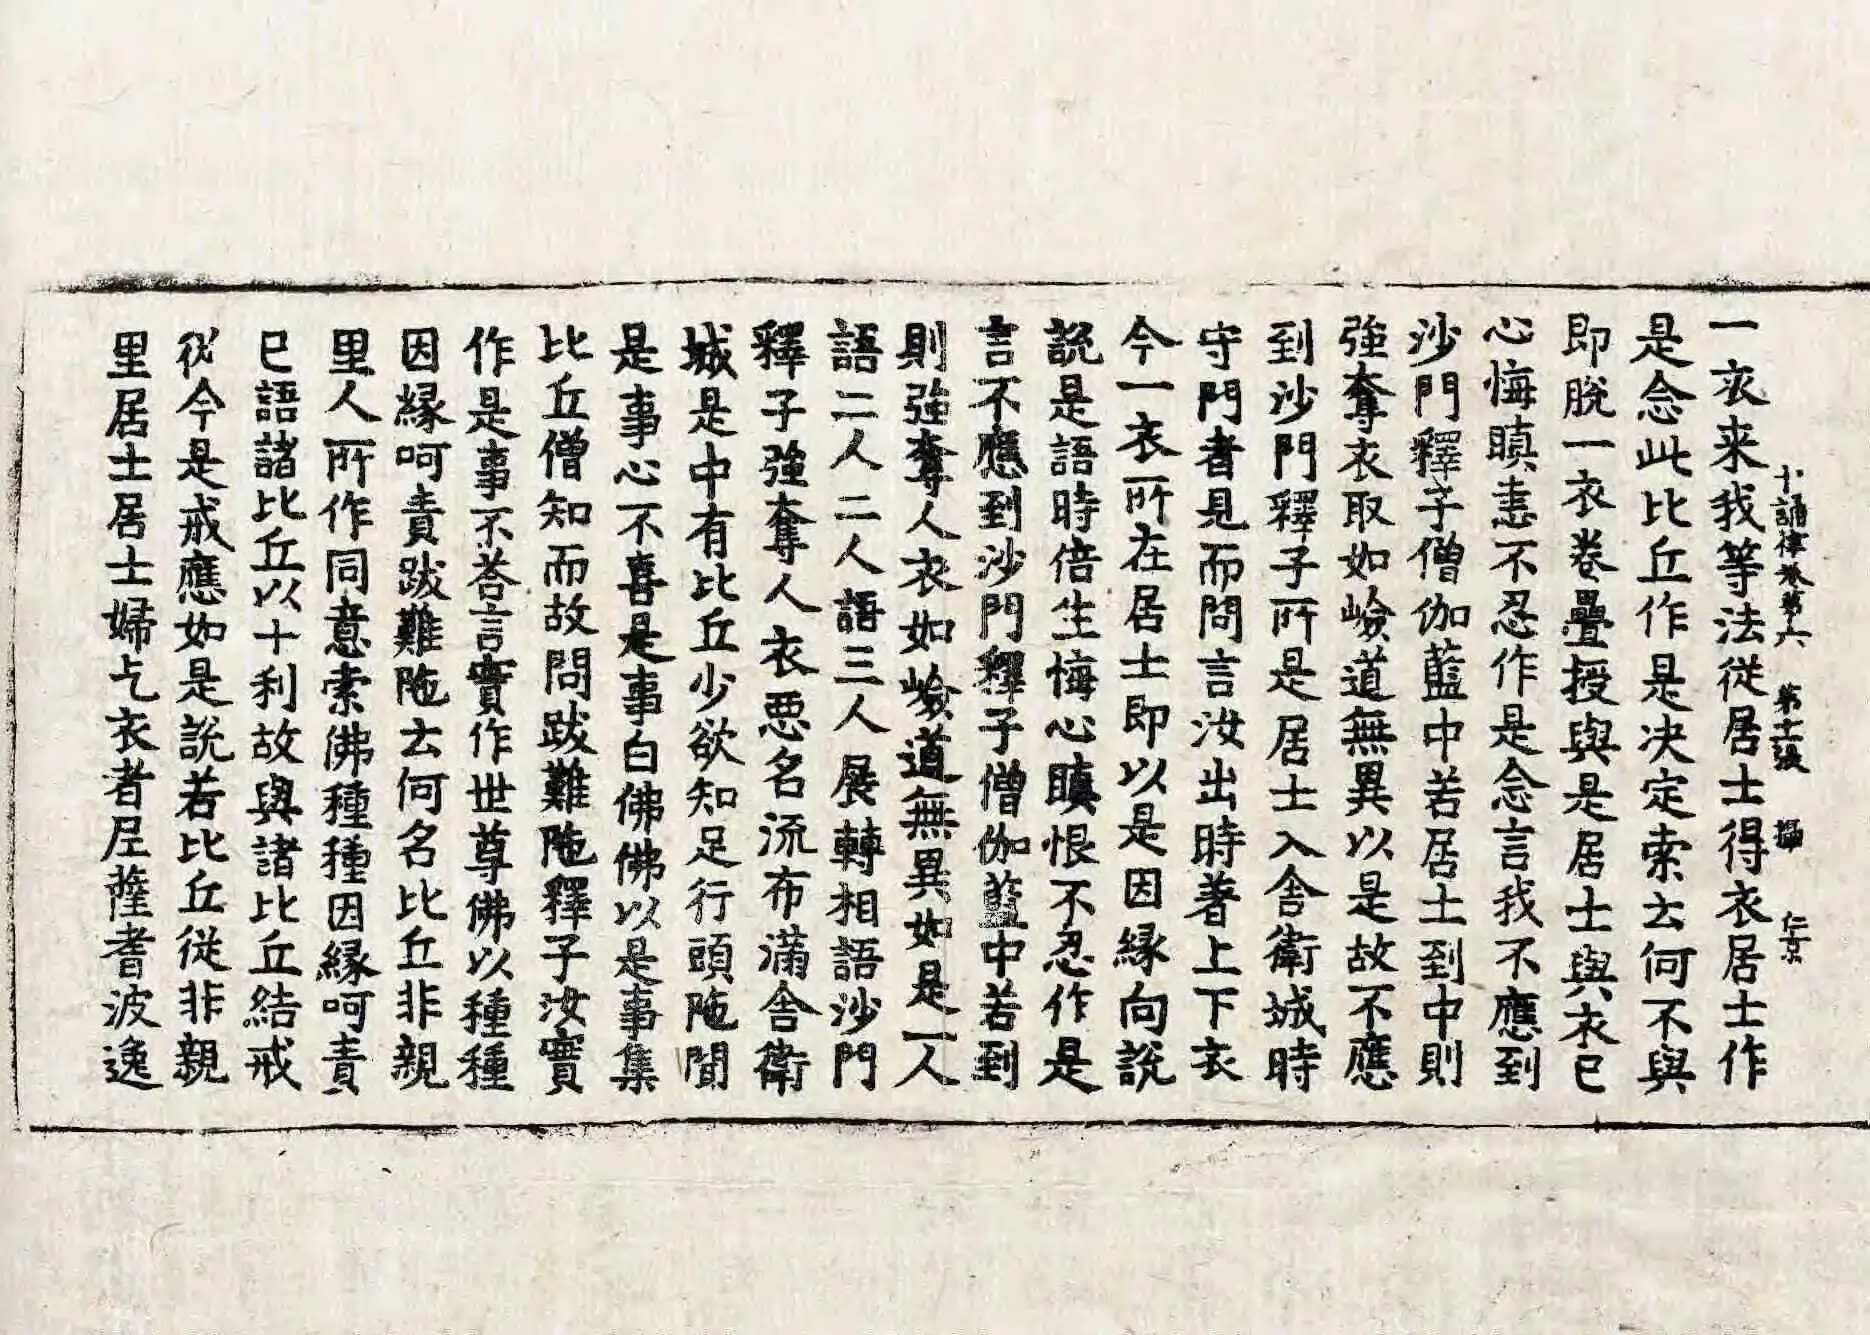 十誦律卷第六　第十二張　攝　仁京
一衣来我等法従居士得衣居士作
是念此比丘作是决定索去何不與
即脫一衣卷疊授與是居士與衣已
心悔瞋恚不忍作是念言我不應到
沙門釋子僧伽藍中若居士到中則
強奪衣取如嶮道無異以是故不應
到沙門釋子所是居士入舎衛城時
守門者見而問言汝出時著上下衣
今一衣所在居士即以是因縁向說
說是語時倍生悔心瞋恨不忍作是
言不應到沙門釋子僧伽藍中若到
則強奪人衣如嶮道無異如是一人
語二人二人語三人展轉相語沙門
釋子強奪人衣悪名流布滿舎衛
城是中有比丘少欲知足行頭陁聞
是事心不喜是事白佛佛以是事集
比丘僧知而故問跋難陁釋子汝實
作是事不荅言實作世尊佛以種種
因縁呵責跋難陁去何名比丘非親
里人所作同意索佛種種因縁呵責
已語諸比丘以十利故與諸比丘結戒
従今是戒應如是說若比丘従非親
里居士居士婦乞衣者尼薩耆波逸